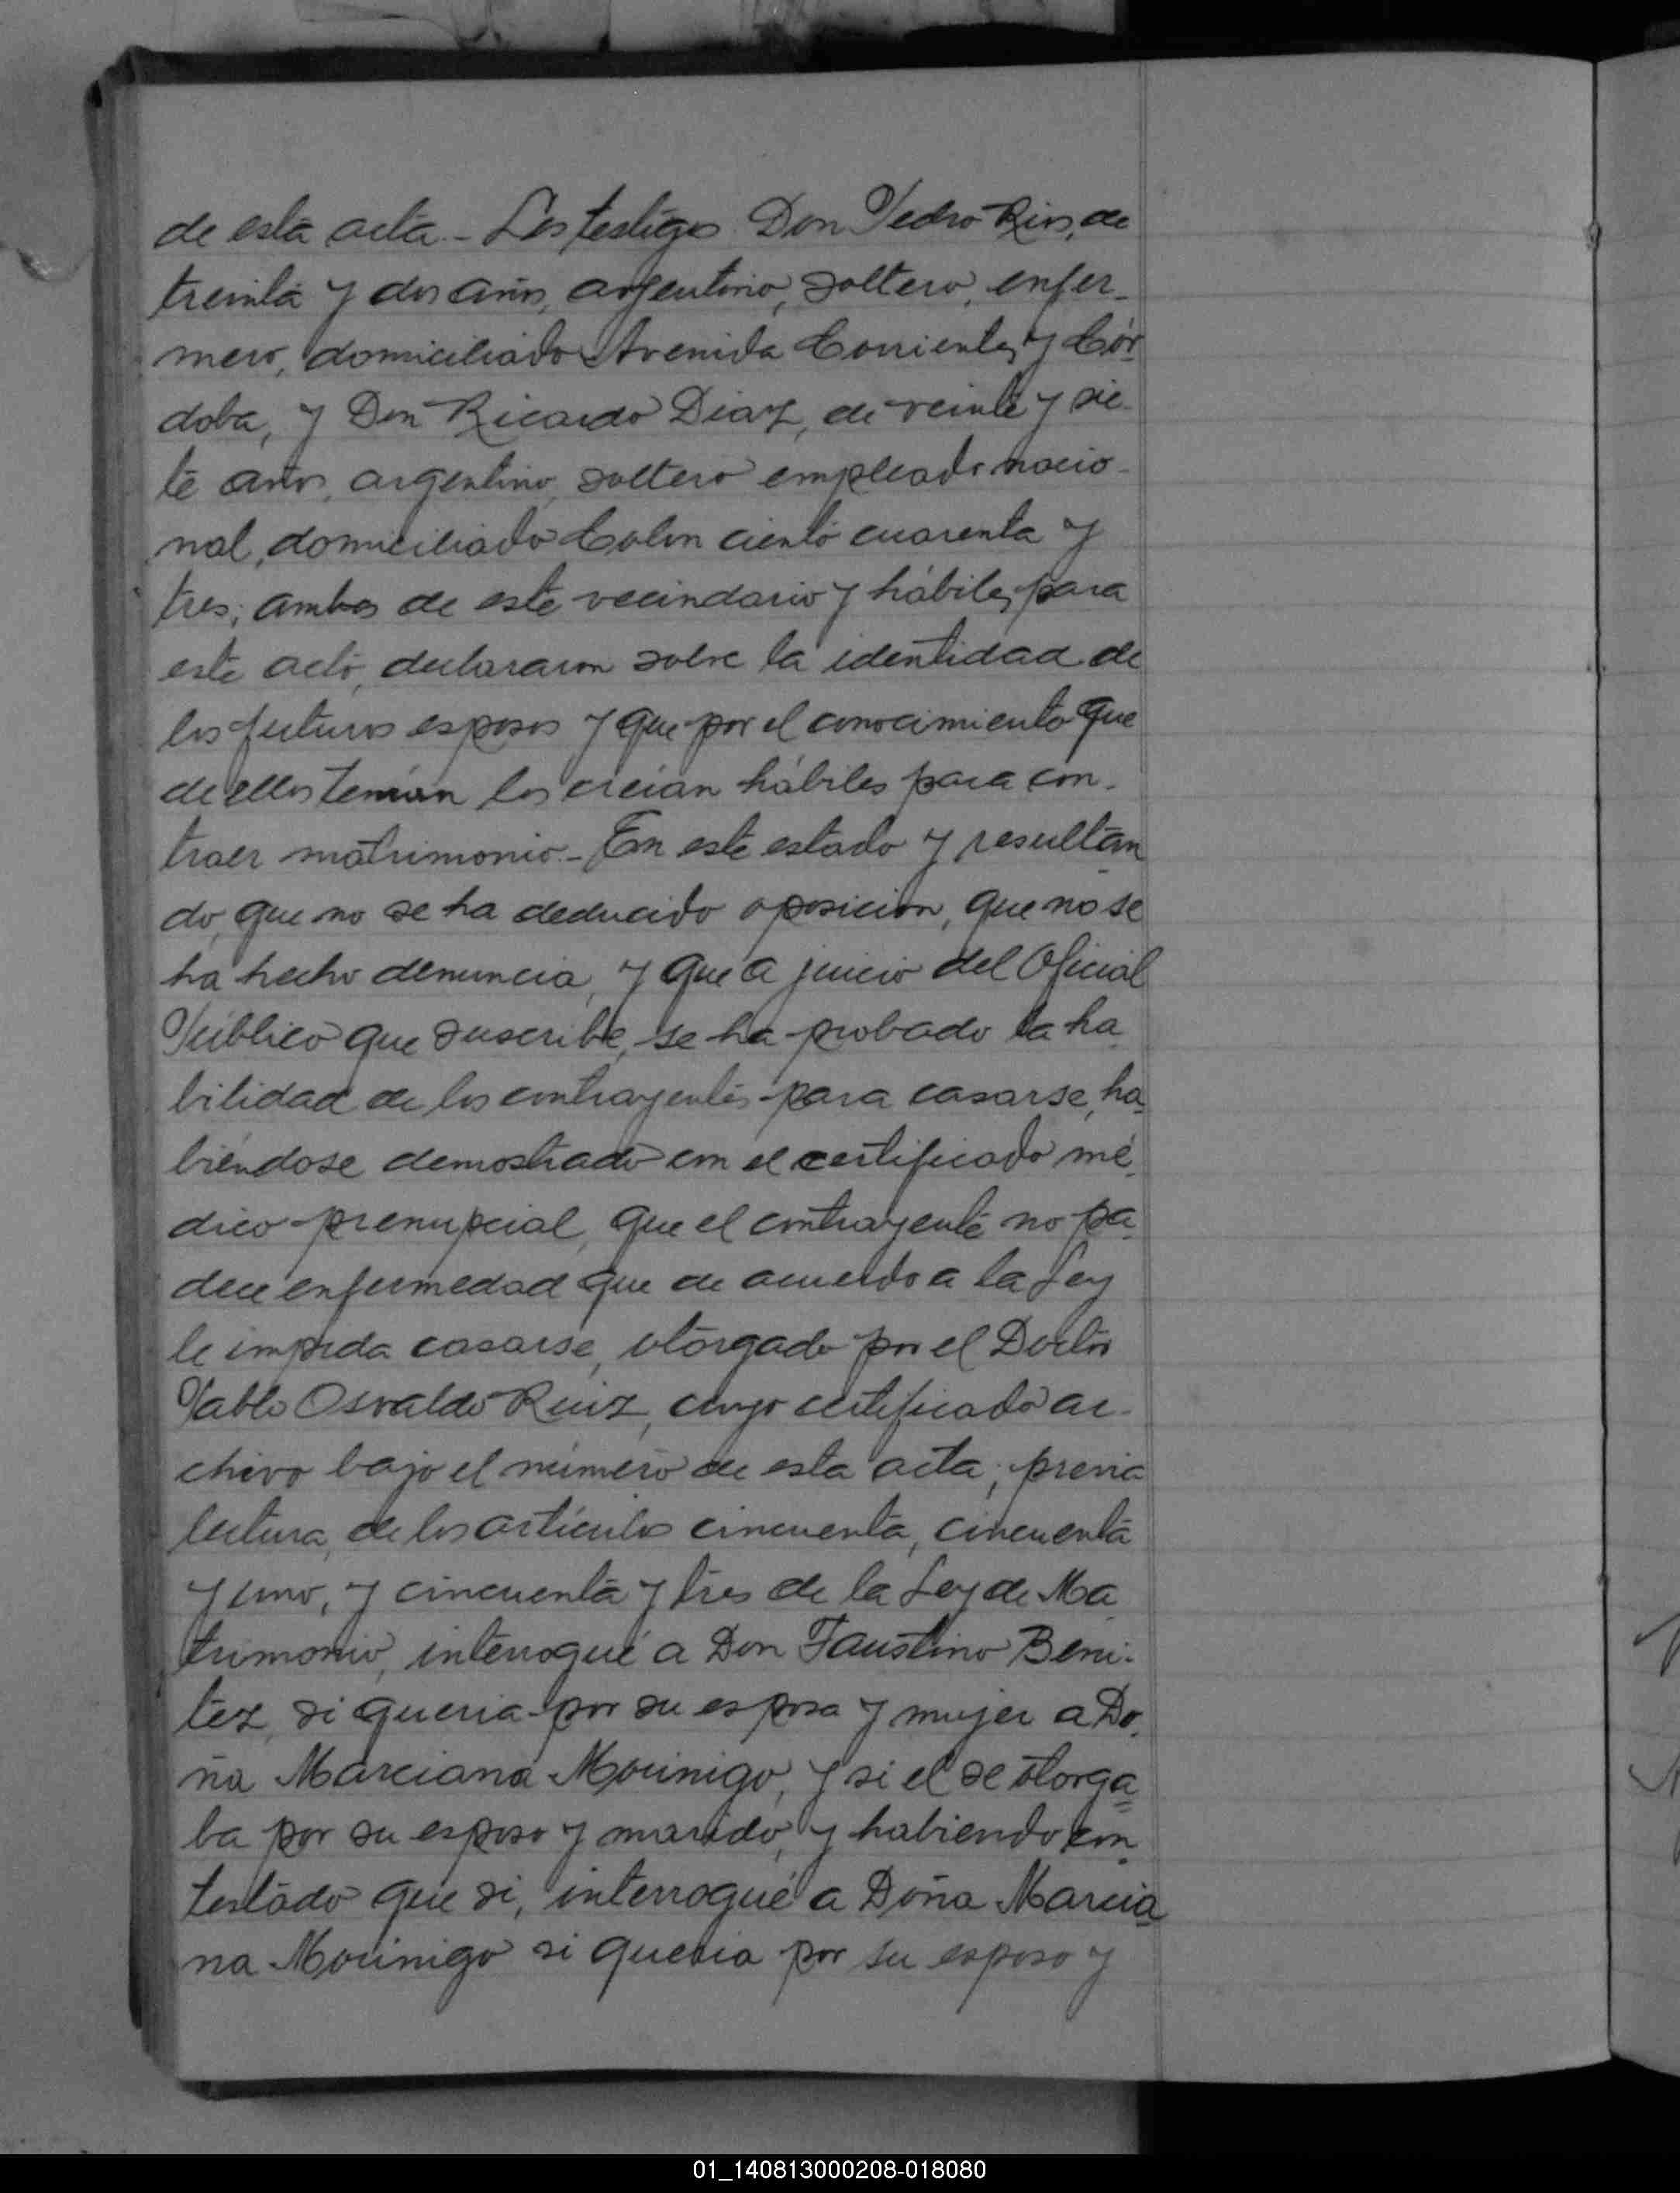 de esta acta.- Los testigos Don Pedro Rios, de
treinta y dos años, argentino, soltero, enfer-
mero, domiciliado Avenida Corrientes y Cór-
doba, y Don Ricardo Diaz, de veinte y sie-
te años, argentino, soltero empleado nacio-
nal, domiciliado Colon ciento cuarenta y
tres; ambos de este vecindario y hábiles para
este acto, declararon sobre la identidad de
los futuros esposos y que por el conocimiento que
de ellos tenían los creían hábiles para con-
traer matrimonio.- En este estado y resultan
do, que no se ha deducido oposición, que no se
ha hecho denuncia, y que a juicio del Oficial
Público que suscribe, se ha probado la ha-
bilidad de los contrayentes para casarse, ha-
biéndose demostrado con el certificado mé-
dico prenupcial, que el contrayente no pa-
dece enfermedad que de acuerdo a la Ley
le impida casarse, otorgado por el Doctor
Pablo Osvaldo Ruiz, cuyo certificado ar-
chivo bajo el número de esta acta; previa
lectura, de los artículos cincuenta, cincuenta
y uno, y cincuenta y tres de la Ley de Ma-
trimonio, interrogué a Don Faustino Beni-
tez, si queria por su esposa y mujer a Do-
ña Marciana Mourinigo, y si el se otorga=
ba por su esposo y marido, y habiendo con-
testado que si, interrogué a Doña Marcia
na Mourinigo si queria por su esposo y
01_140813000208-018080